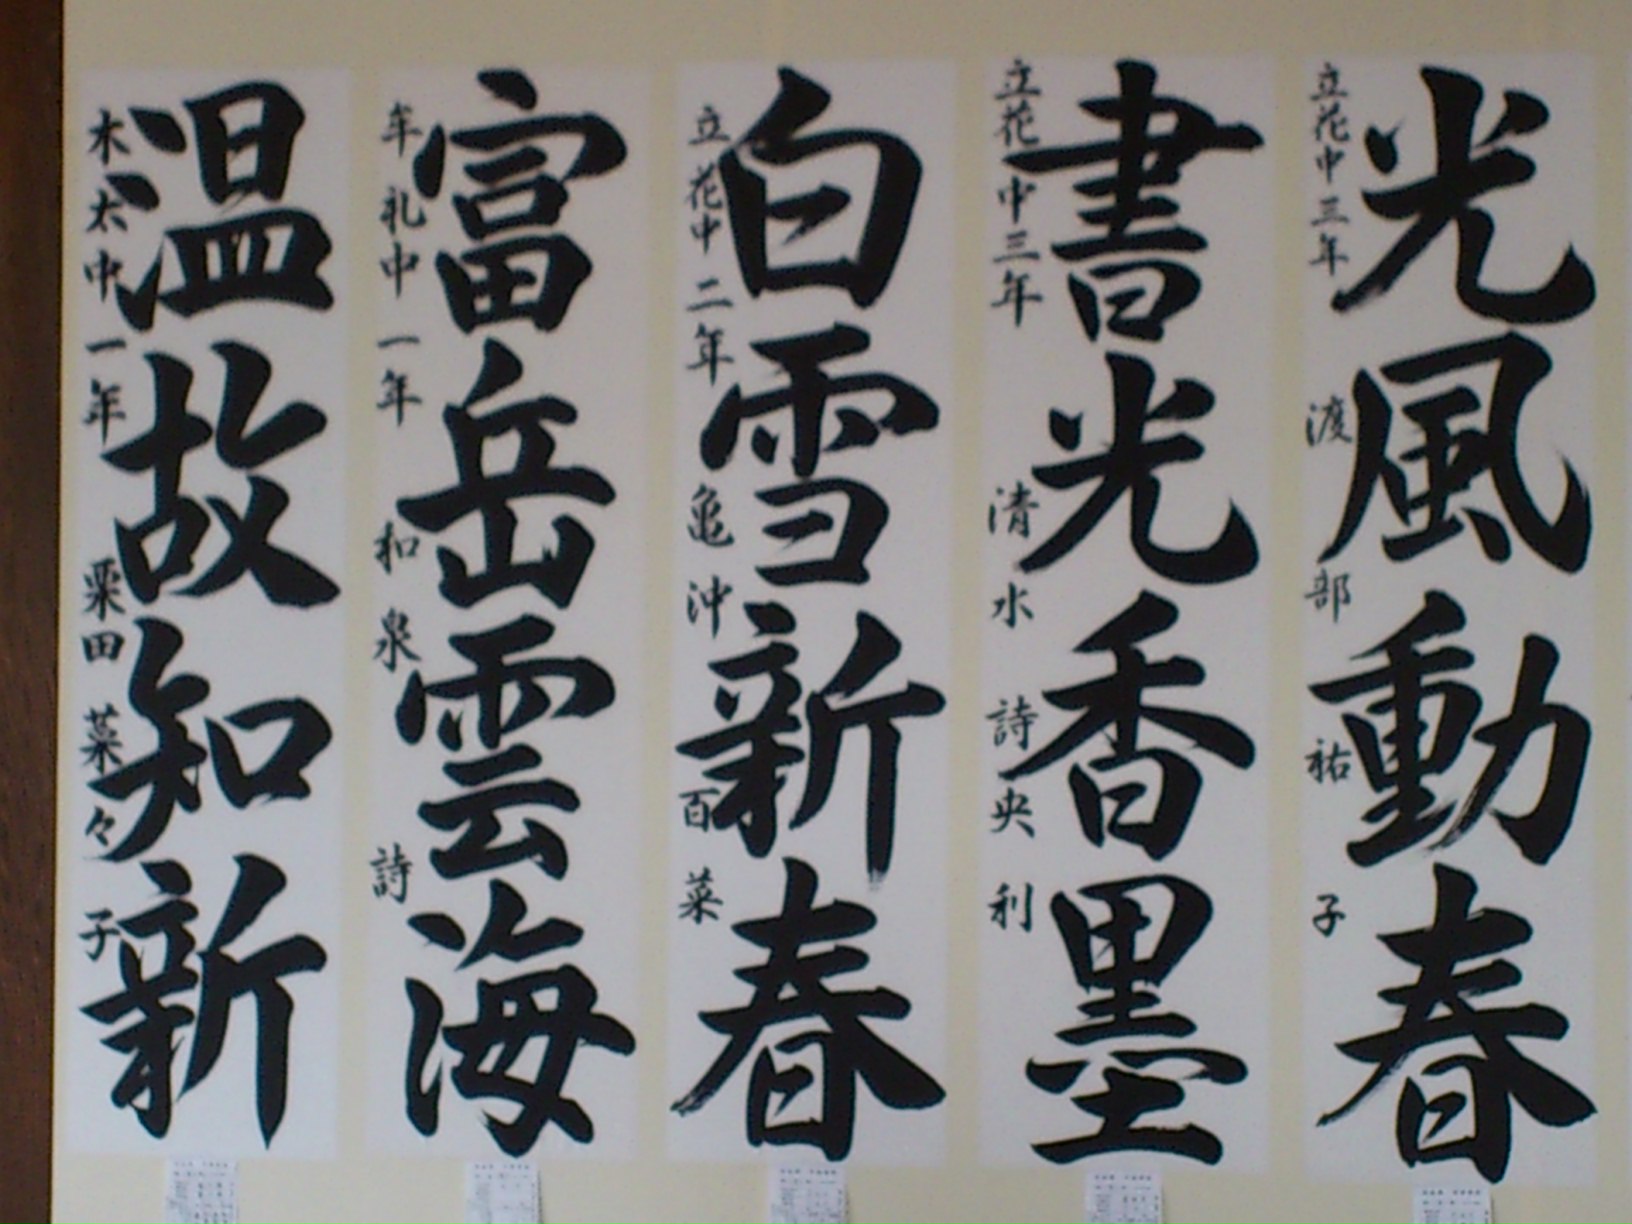 光風動春
立花中三年 渡部祐子
書光香墨
立花中三年 清水詩央利
白雪新春
立花中二年 亀沖百菜
富岳雲海
牟礼中一年 和泉詩
温故知新
木太中一年 粟田菜々子